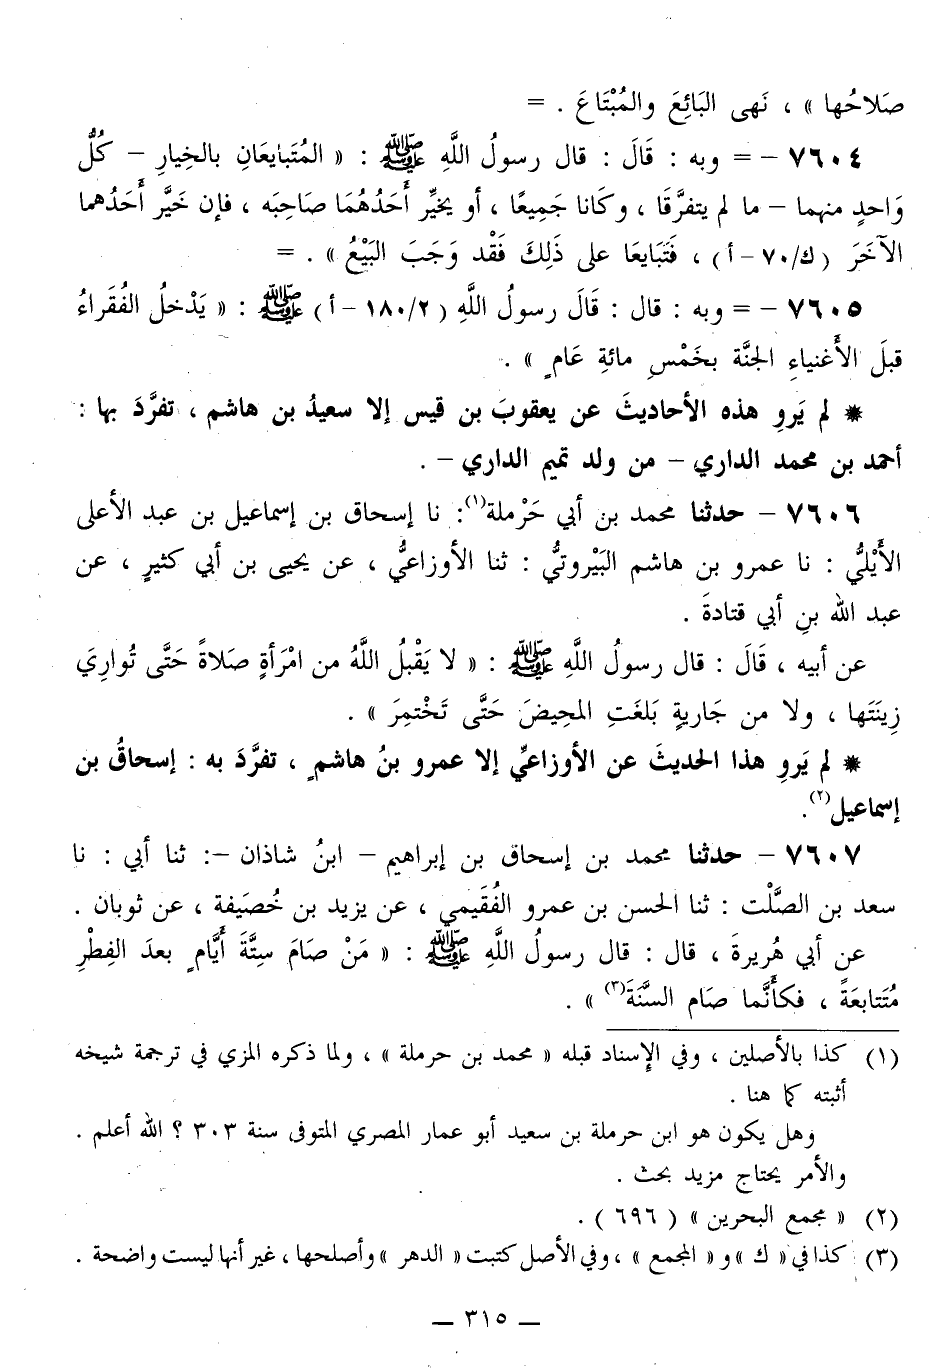 صَلَاحُها » ، نَهى البَائِعَ والمُبْتَاعَ . =
٧٦٠٤ – = وبه : قَالَ : قال رسولُ اللَّهِ ﷺ : « المُتَبايعَانِ بالخِيارِ – كُلُّ
وَاحدٍ منهما – ما لم يتفرَّقَا ، وكَانا جَميعًا ، أو يخيِّر أَحَدُهُمَا صَاحِبَه ، فإن خَيَّر أَحَدُهما
الآخَرَ ( ك/٧٠ – أ ) ، فَتَبايعَا على ذَلِكَ فَقْد وَجَبَ البَيْعُ » . =
٧٦٠٥ – = وبه : قال : قَالَ رسولُ اللَّهِ ( ١٨٠/٢ – أ ) ﷺ : « يَدْخلُ الفُقَراءُ
قبلَ الأَغنياءِ الجنَّة بخَمْسِ مائةِ عَامٍ » .
* لم يَروِ هذه الأحاديثَ عن يعقوبَ بن قيس إلا سعيدُ بن هاشم ، تفرَّدَ بها :
أحمد بن محمد الداري – من ولد تميم الداري – .
٧٦٠٦ – حدثنا محمد بن أبي حَرْملة(١): نا إسحاق بن إسماعيل بن عبد الأعلى
الأَيْليُّ : نا عمرو بن هاشم البَيْروتيُّ : ثنا الأوزاعيُّ ، عن يحيى بن أبي كثيرٍ ، عن
عبد الله بنِ أبي قتادةَ .
عن أبيه ، قَالَ : قال رسولُ اللَّهِ ﷺ : « لا يَقْبلُ اللَّهُ من امْرَأةٍ صَلاةً حَتَّى تُوارِيَ
زِينَتَها ، ولا من جَاريةٍ بَلغَتِ المحِيضَ حَتَّى تَخْتمِرَ » .
* لم يَروِ هذا الحديثَ عن الأوزاعيِّ إلا عمرو بنُ هاشمٍ ، تفرَّدَ به : إسحاقُ بن
إسماعيل(٢).
٧٦٠٧ – حدثنا محمد بن إسحاق بن إبراهيم – ابنُ شاذان –: ثنا أبي : نا
سعد بن الصَّلْت : ثنا الحسن بن عمرو الفُقَيمي ، عن يزيد بن خُصَيفة ، عن ثوبان .
عن أبي هُريرةَ ، قال : قال رسولُ اللَّهِ ﷺ : « مَنْ صامَ سِتَّةَ أَيَّامٍ بعدَ الفِطْرِ
مُتَتابعَةً ، فكأَنَّما صَام السَّنَةَ(٣) » .
(١) كذا بالأصلين ، وفي الإسناد قبله « محمد بن حرملة » ، ولما ذكره المزي في ترجمة شيخه
أثبته كما هنا .
وهل يكون هو ابن حرملة بن سعيد أبو عمار المصري المتوفى سنة ٣٠٣ ؟ الله أعلم .
والأمر يحتاج مزيد بحث .
(٢) « مجمع البحرين » ( ٦٩٦ ) .
(٣) كذا في « ك » و « المجمع » ، وفي الأصل كتبت « الدهر » وأصلحها ، غير أنها ليست واضحة .
– ٣١٥ –